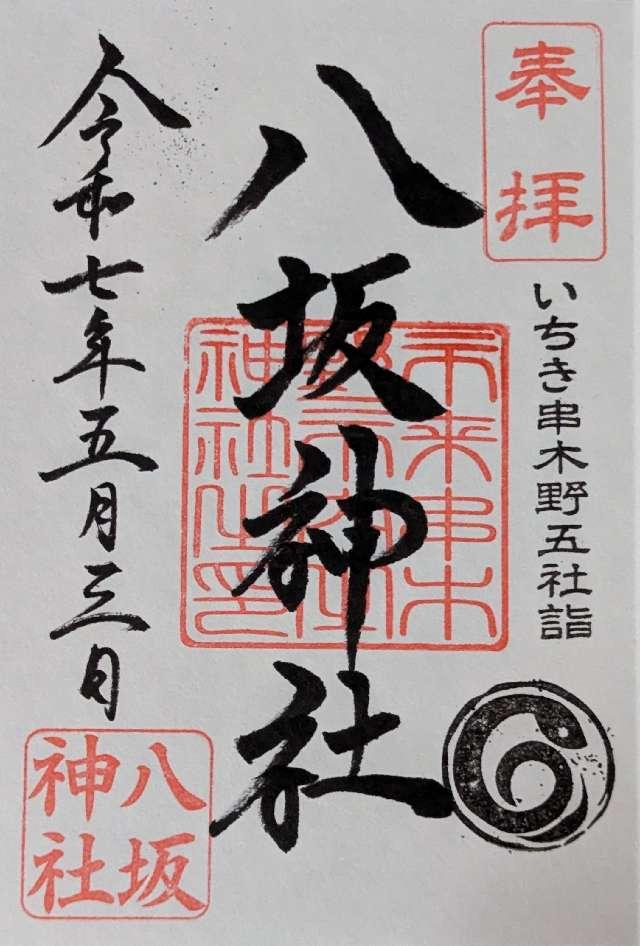 奉拝
いちき串木野五社詣
八坂神社
市来串木
神社之印
令和七年五月三日
八坂
神社